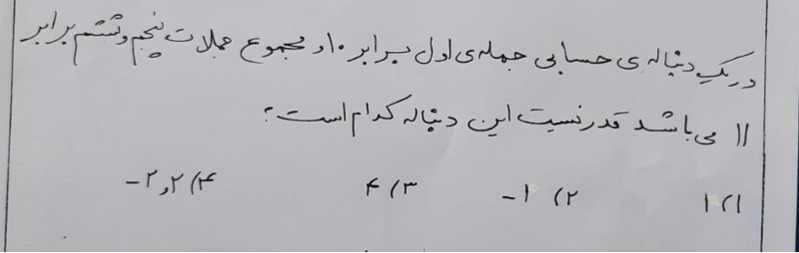 در یک دنباله ی حسابی جمله ی اول برابر ۱۰ و مجموع جملات پنجم و ششم برابر
۱۱ می باشد قدرنسبت این دنباله کدام است؟
۱) ۱ ۲) ۱- ۳) ۴ ۴) ۲ و ۲-